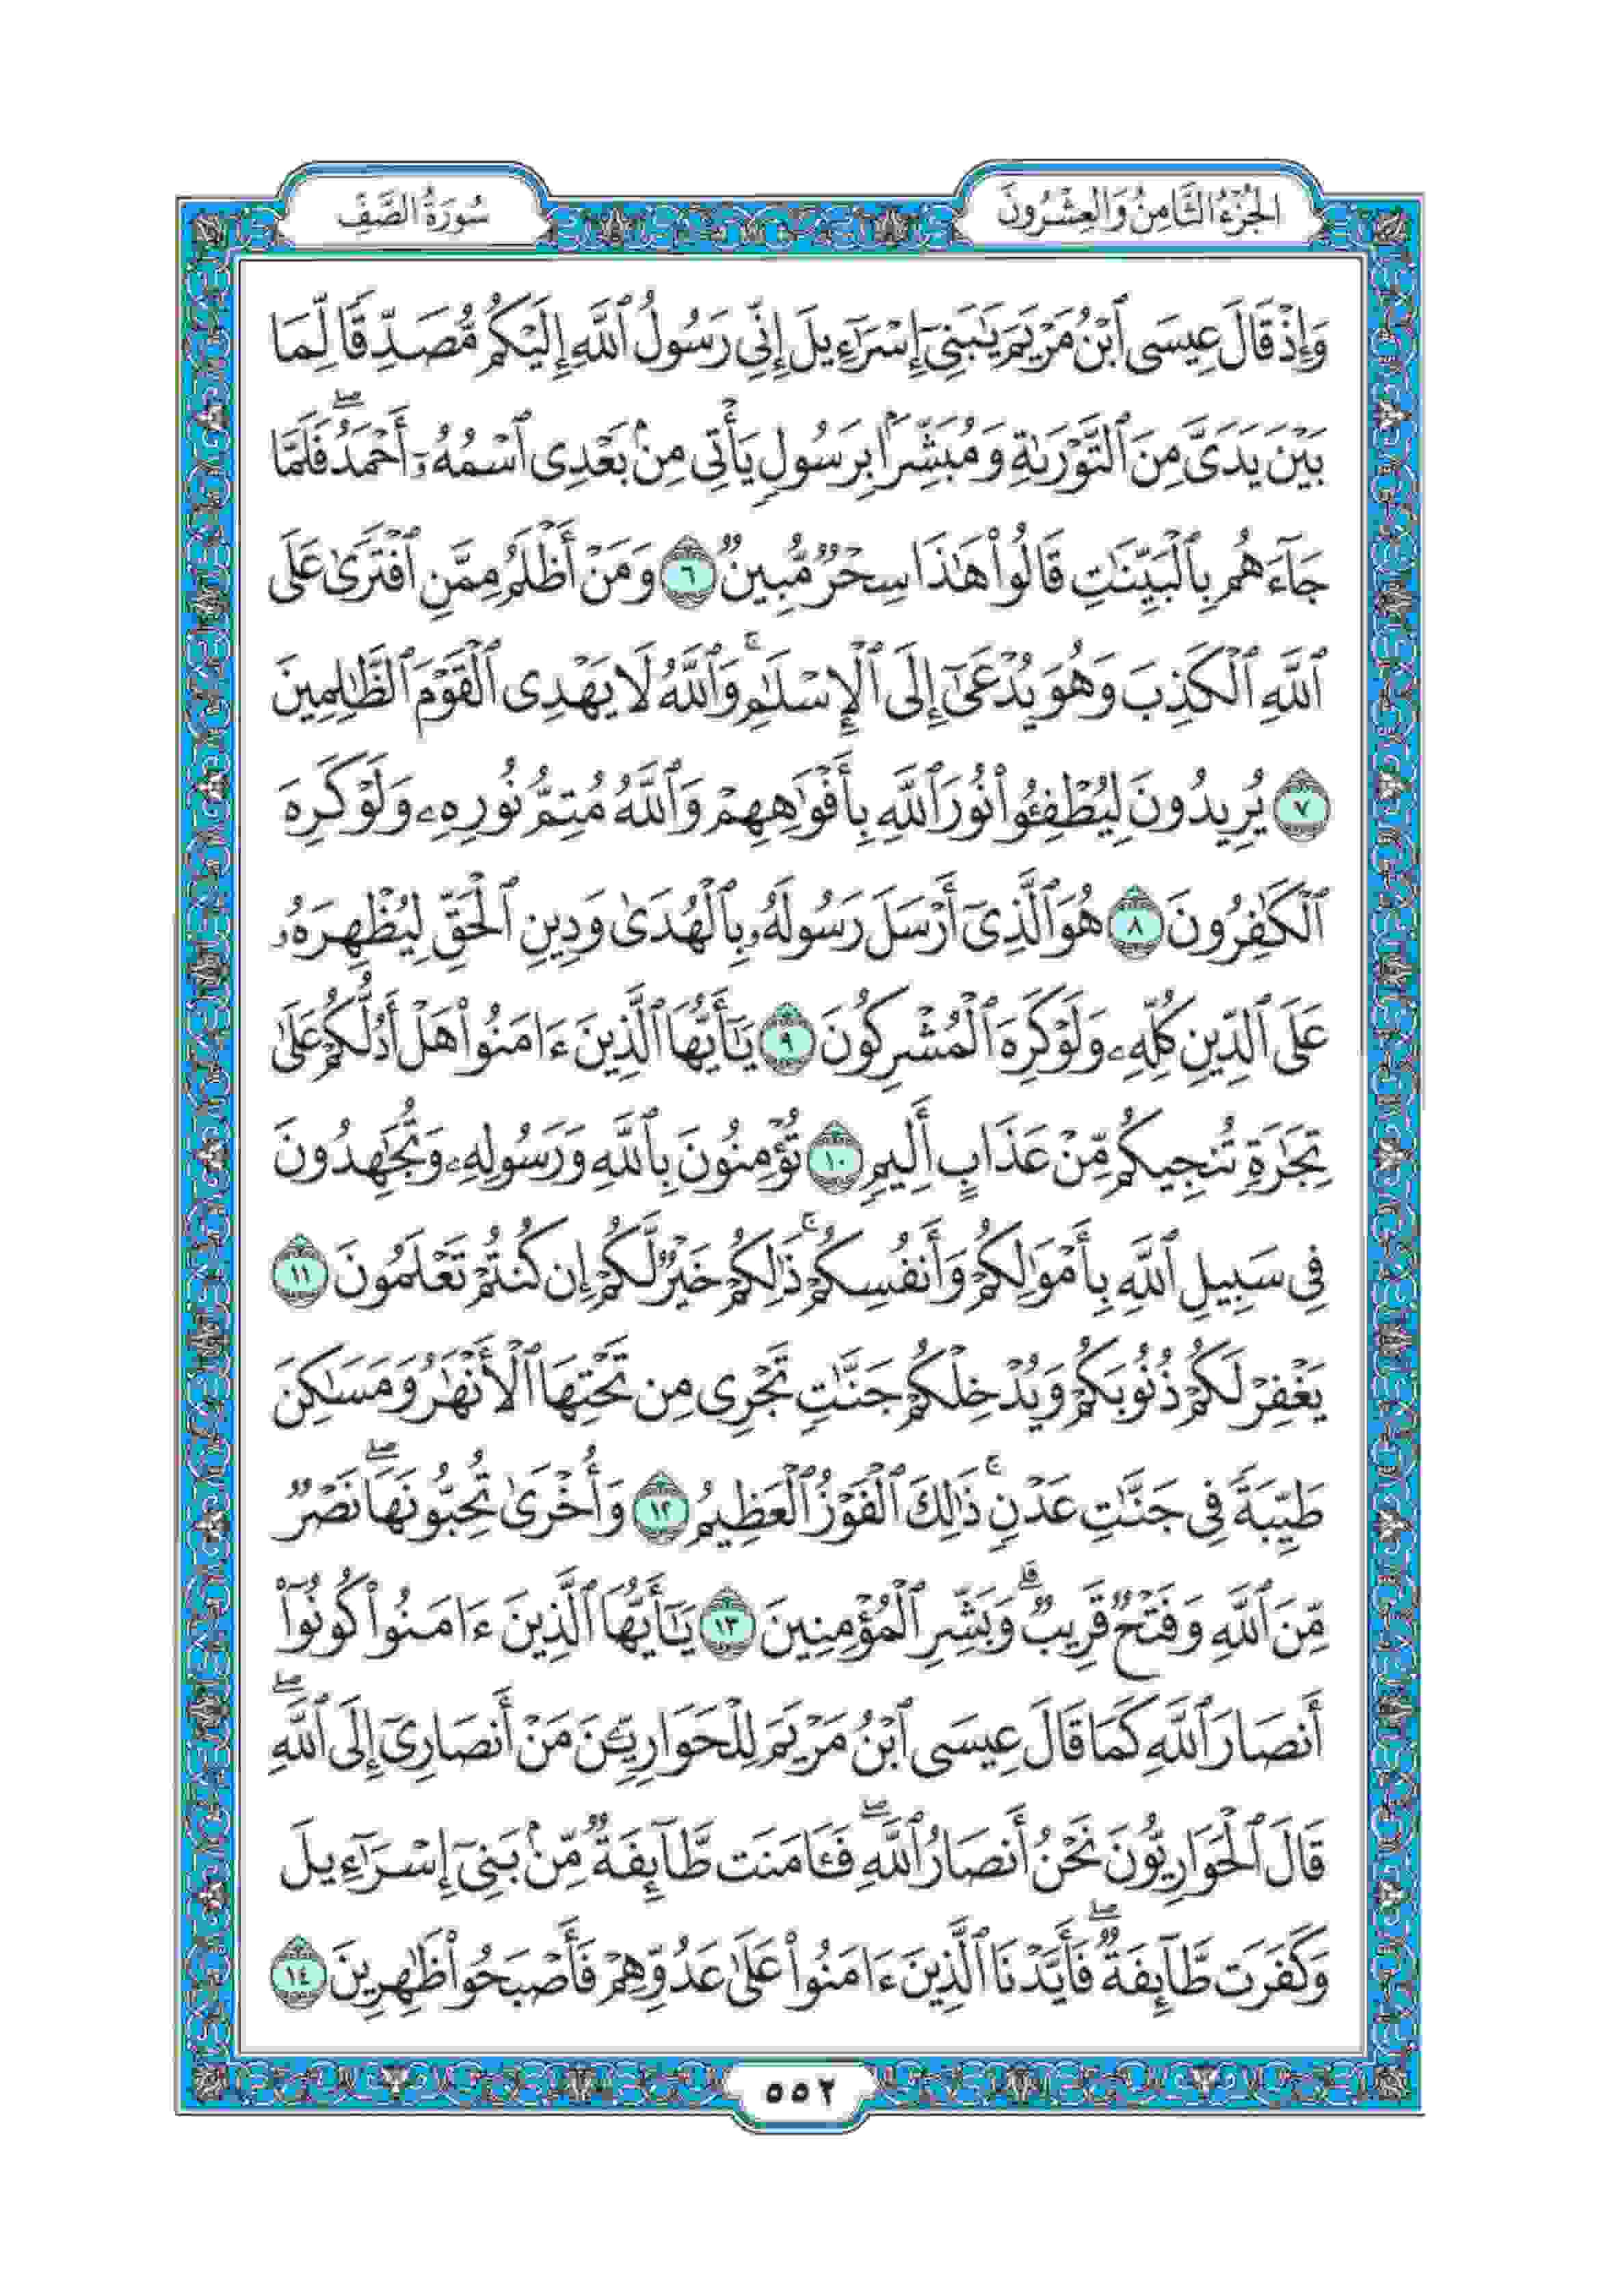 الجزء الثامن والعشرون
سورة الصف
وَإِذْ قَالَ عِيسَى ٱبْنُ مَرْيَمَ يَٰبَنِىٓ إِسْرَٰٓءِيلَ إِنِّى رَسُولُ ٱللَّهِ إِلَيْكُم مُّصَدِّقًا لِّمَا
بَيْنَ يَدَىَّ مِنَ ٱلتَّوْرَىٰةِ وَمُبَشِّرًۢا بِرَسُولٍ يَأْتِى مِنۢ بَعْدِى ٱسْمُهُۥٓ أَحْمَدُ ۖ فَلَمَّا
جَآءَهُم بِٱلْبَيِّنَٰتِ قَالُوا۟ هَٰذَا سِحْرٌ مُّبِينٌ ٦ وَمَنْ أَظْلَمُ مِمَّنِ ٱفْتَرَىٰ عَلَى
ٱللَّهِ ٱلْكَذِبَ وَهُوَ يُدْعَىٰٓ إِلَى ٱلْإِسْلَٰمِ ۚ وَٱللَّهُ لَا يَهْدِى ٱلْقَوْمَ ٱلظَّٰلِمِينَ
٧ يُرِيدُونَ لِيُطْفِـُٔوا۟ نُورَ ٱللَّهِ بِأَفْوَٰهِهِمْ وَٱللَّهُ مُتِمُّ نُورِهِۦ وَلَوْ كَرِهَ
ٱلْكَٰفِرُونَ ٨ هُوَ ٱلَّذِىٓ أَرْسَلَ رَسُولَهُۥ بِٱلْهُدَىٰ وَدِينِ ٱلْحَقِّ لِيُظْهِرَهُۥ
عَلَى ٱلدِّينِ كُلِّهِۦ وَلَوْ كَرِهَ ٱلْمُشْرِكُونَ ٩ يَٰٓأَيُّهَا ٱلَّذِينَ ءَامَنُوا۟ هَلْ أَدُلُّكُمْ عَلَىٰ
تِجَٰرَةٍ تُنجِيكُم مِّنْ عَذَابٍ أَلِيمٍ ١٠ تُؤْمِنُونَ بِٱللَّهِ وَرَسُولِهِۦ وَتُجَٰهِدُونَ
فِى سَبِيلِ ٱللَّهِ بِأَمْوَٰلِكُمْ وَأَنفُسِكُمْ ۚ ذَٰلِكُمْ خَيْرٌ لَّكُمْ إِن كُنتُمْ تَعْلَمُونَ ١١
يَغْفِرْ لَكُمْ ذُنُوبَكُمْ وَيُدْخِلْكُمْ جَنَّٰتٍ تَجْرِى مِن تَحْتِهَا ٱلْأَنْهَٰرُ وَمَسَٰكِنَ
طَيِّبَةً فِى جَنَّٰتِ عَدْنٍ ۚ ذَٰلِكَ ٱلْفَوْزُ ٱلْعَظِيمُ ١٢ وَأُخْرَىٰ تُحِبُّونَهَا ۖ نَصْرٌ
مِّنَ ٱللَّهِ وَفَتْحٌ قَرِيبٌ ۗ وَبَشِّرِ ٱلْمُؤْمِنِينَ ١٣ يَٰٓأَيُّهَا ٱلَّذِينَ ءَامَنُوا۟ كُونُوٓا۟
أَنصَارَ ٱللَّهِ كَمَا قَالَ عِيسَى ٱبْنُ مَرْيَمَ لِلْحَوَارِيِّـۧنَ مَنْ أَنصَارِىٓ إِلَى ٱللَّهِ ۖ
قَالَ ٱلْحَوَارِيُّونَ نَحْنُ أَنصَارُ ٱللَّهِ ۖ فَـَٔامَنَت طَّآئِفَةٌ مِّنۢ بَنِىٓ إِسْرَٰٓءِيلَ
وَكَفَرَت طَّآئِفَةٌ ۖ فَأَيَّدْنَا ٱلَّذِينَ ءَامَنُوا۟ عَلَىٰ عَدُوِّهِمْ فَأَصْبَحُوا۟ ظَٰهِرِينَ ١٤
٥٥٢